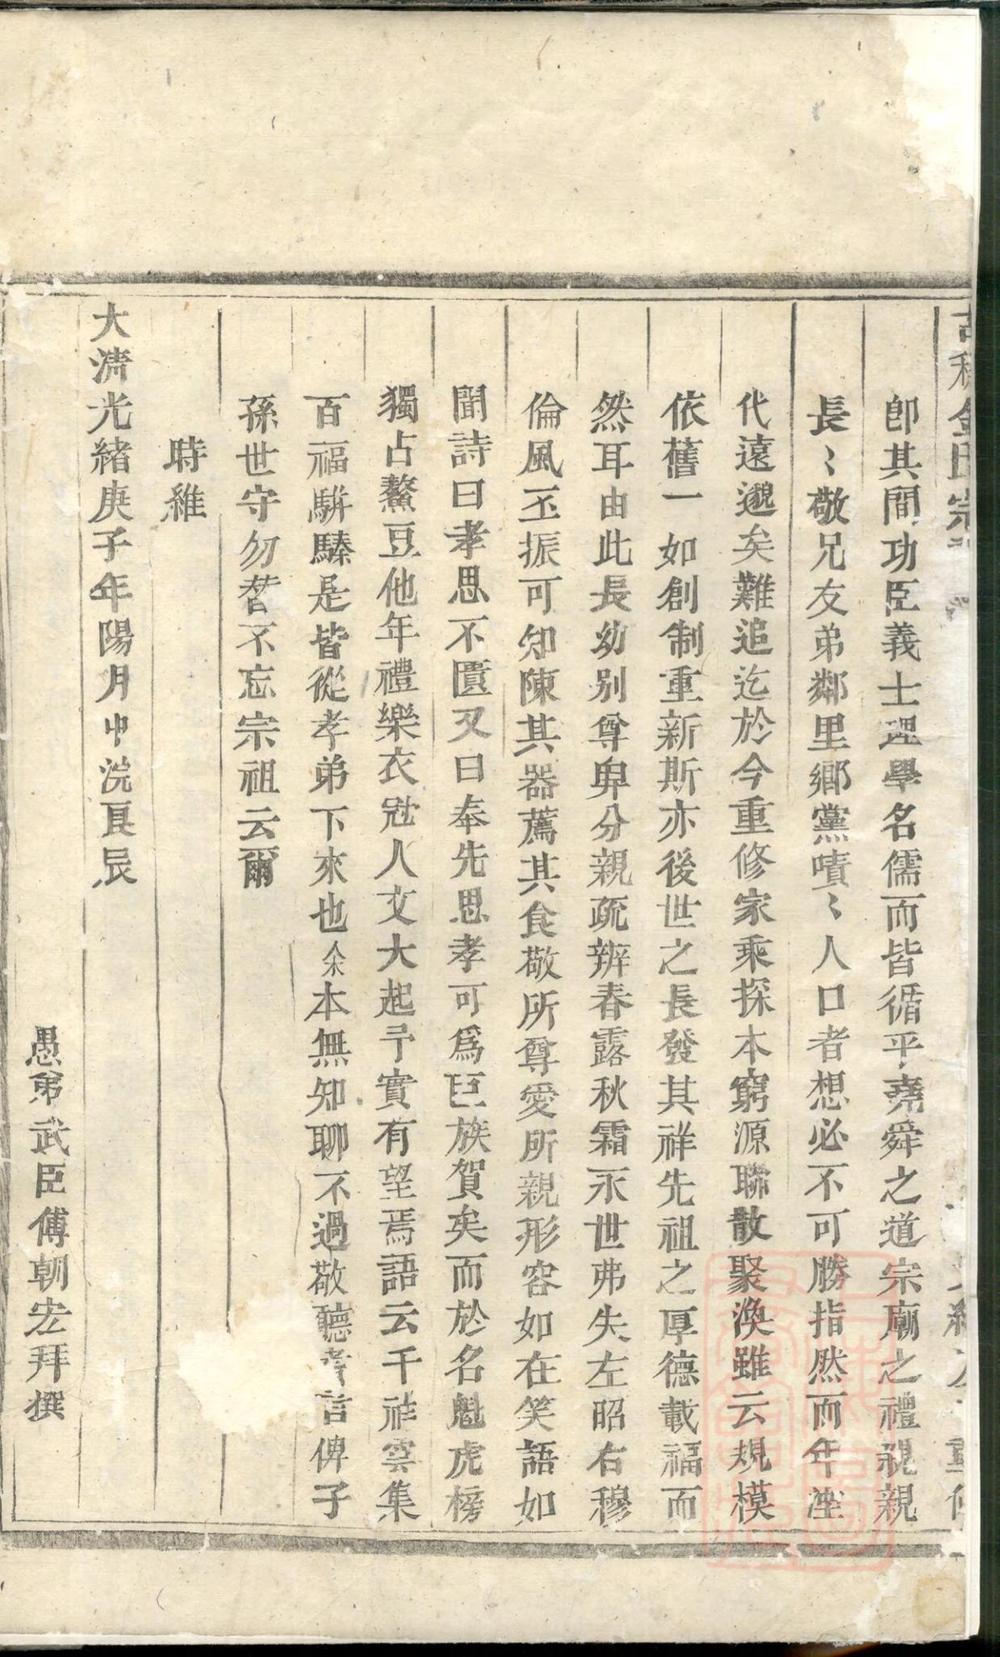 金氏宗
卽其間功臣義士理學名儒而皆循乎堯舜之道宗廟之禮親親
長〻敬兄友弟鄰里鄉黨嘖〻人口者想必不可勝指然而年湮
代遠邈矣難追迄於今重修家乘探本窮源聯散聚渙雖云規模
依舊一如創制重新斯亦後世之長發其祥先祖之厚德載福而
然耳由此長幼別尊卑分親疏辨春露秋霜永世弗失左昭右穆
倫風丕振可知陳其器薦其食敬所尊愛所親形容如在笑語如
聞詩曰孝思不匱又曰奉先思孝可爲巨族賀矣而於名魁虎榜
獨占鰲豆他年禮樂衣冠人文大起予實有望焉語云千祥雲集
百福駢臻是皆從孝弟下來也余本無知聊不過敬聽考言俾子
孫世守勿替不忘宗祖云爾
時維
大淸光緒庚子年陽月中浣良辰
愚弟武臣傅朝宏拜撰